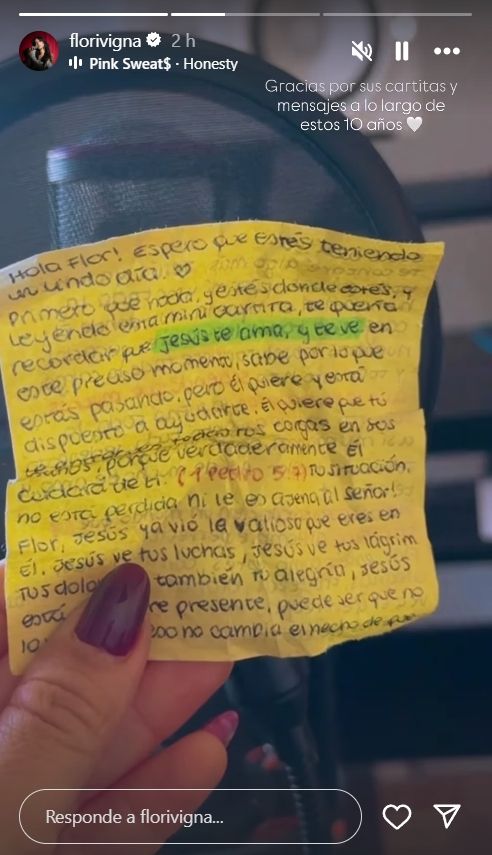 florivigna 2 h
Pink Sweat$ · Honesty
Gracias por sus cartitas y
mensajes a lo largo de
estos 10 años 🤍
Hola Flor! Espero que estés teniendo
un lindo día! ♡
Primero que nada, y estés donde estés, y
leyendo esta mini cartita, te quería
recordar que Jesús te ama, y te ve en
este preciso momento, sabe por lo que
estás pasando, pero Él quiere y está
dispuesto a ayudarte. Él quiere que tú
cargas en sus
porque verdaderamente Él
cuidará de ti. (1 Pedro 5:7) Tu situación.
no está perdida ni le es ajena al Señor!
Flor, Jesús ya vió lo valioso que eres en
Él. Jesús ve tus luchas, Jesús ve tus lágrim
tus dolo también tu alegría, Jesús
está re presente, puede ser que no
lo eso no cambia el hecho de que
Responde a florivigna...